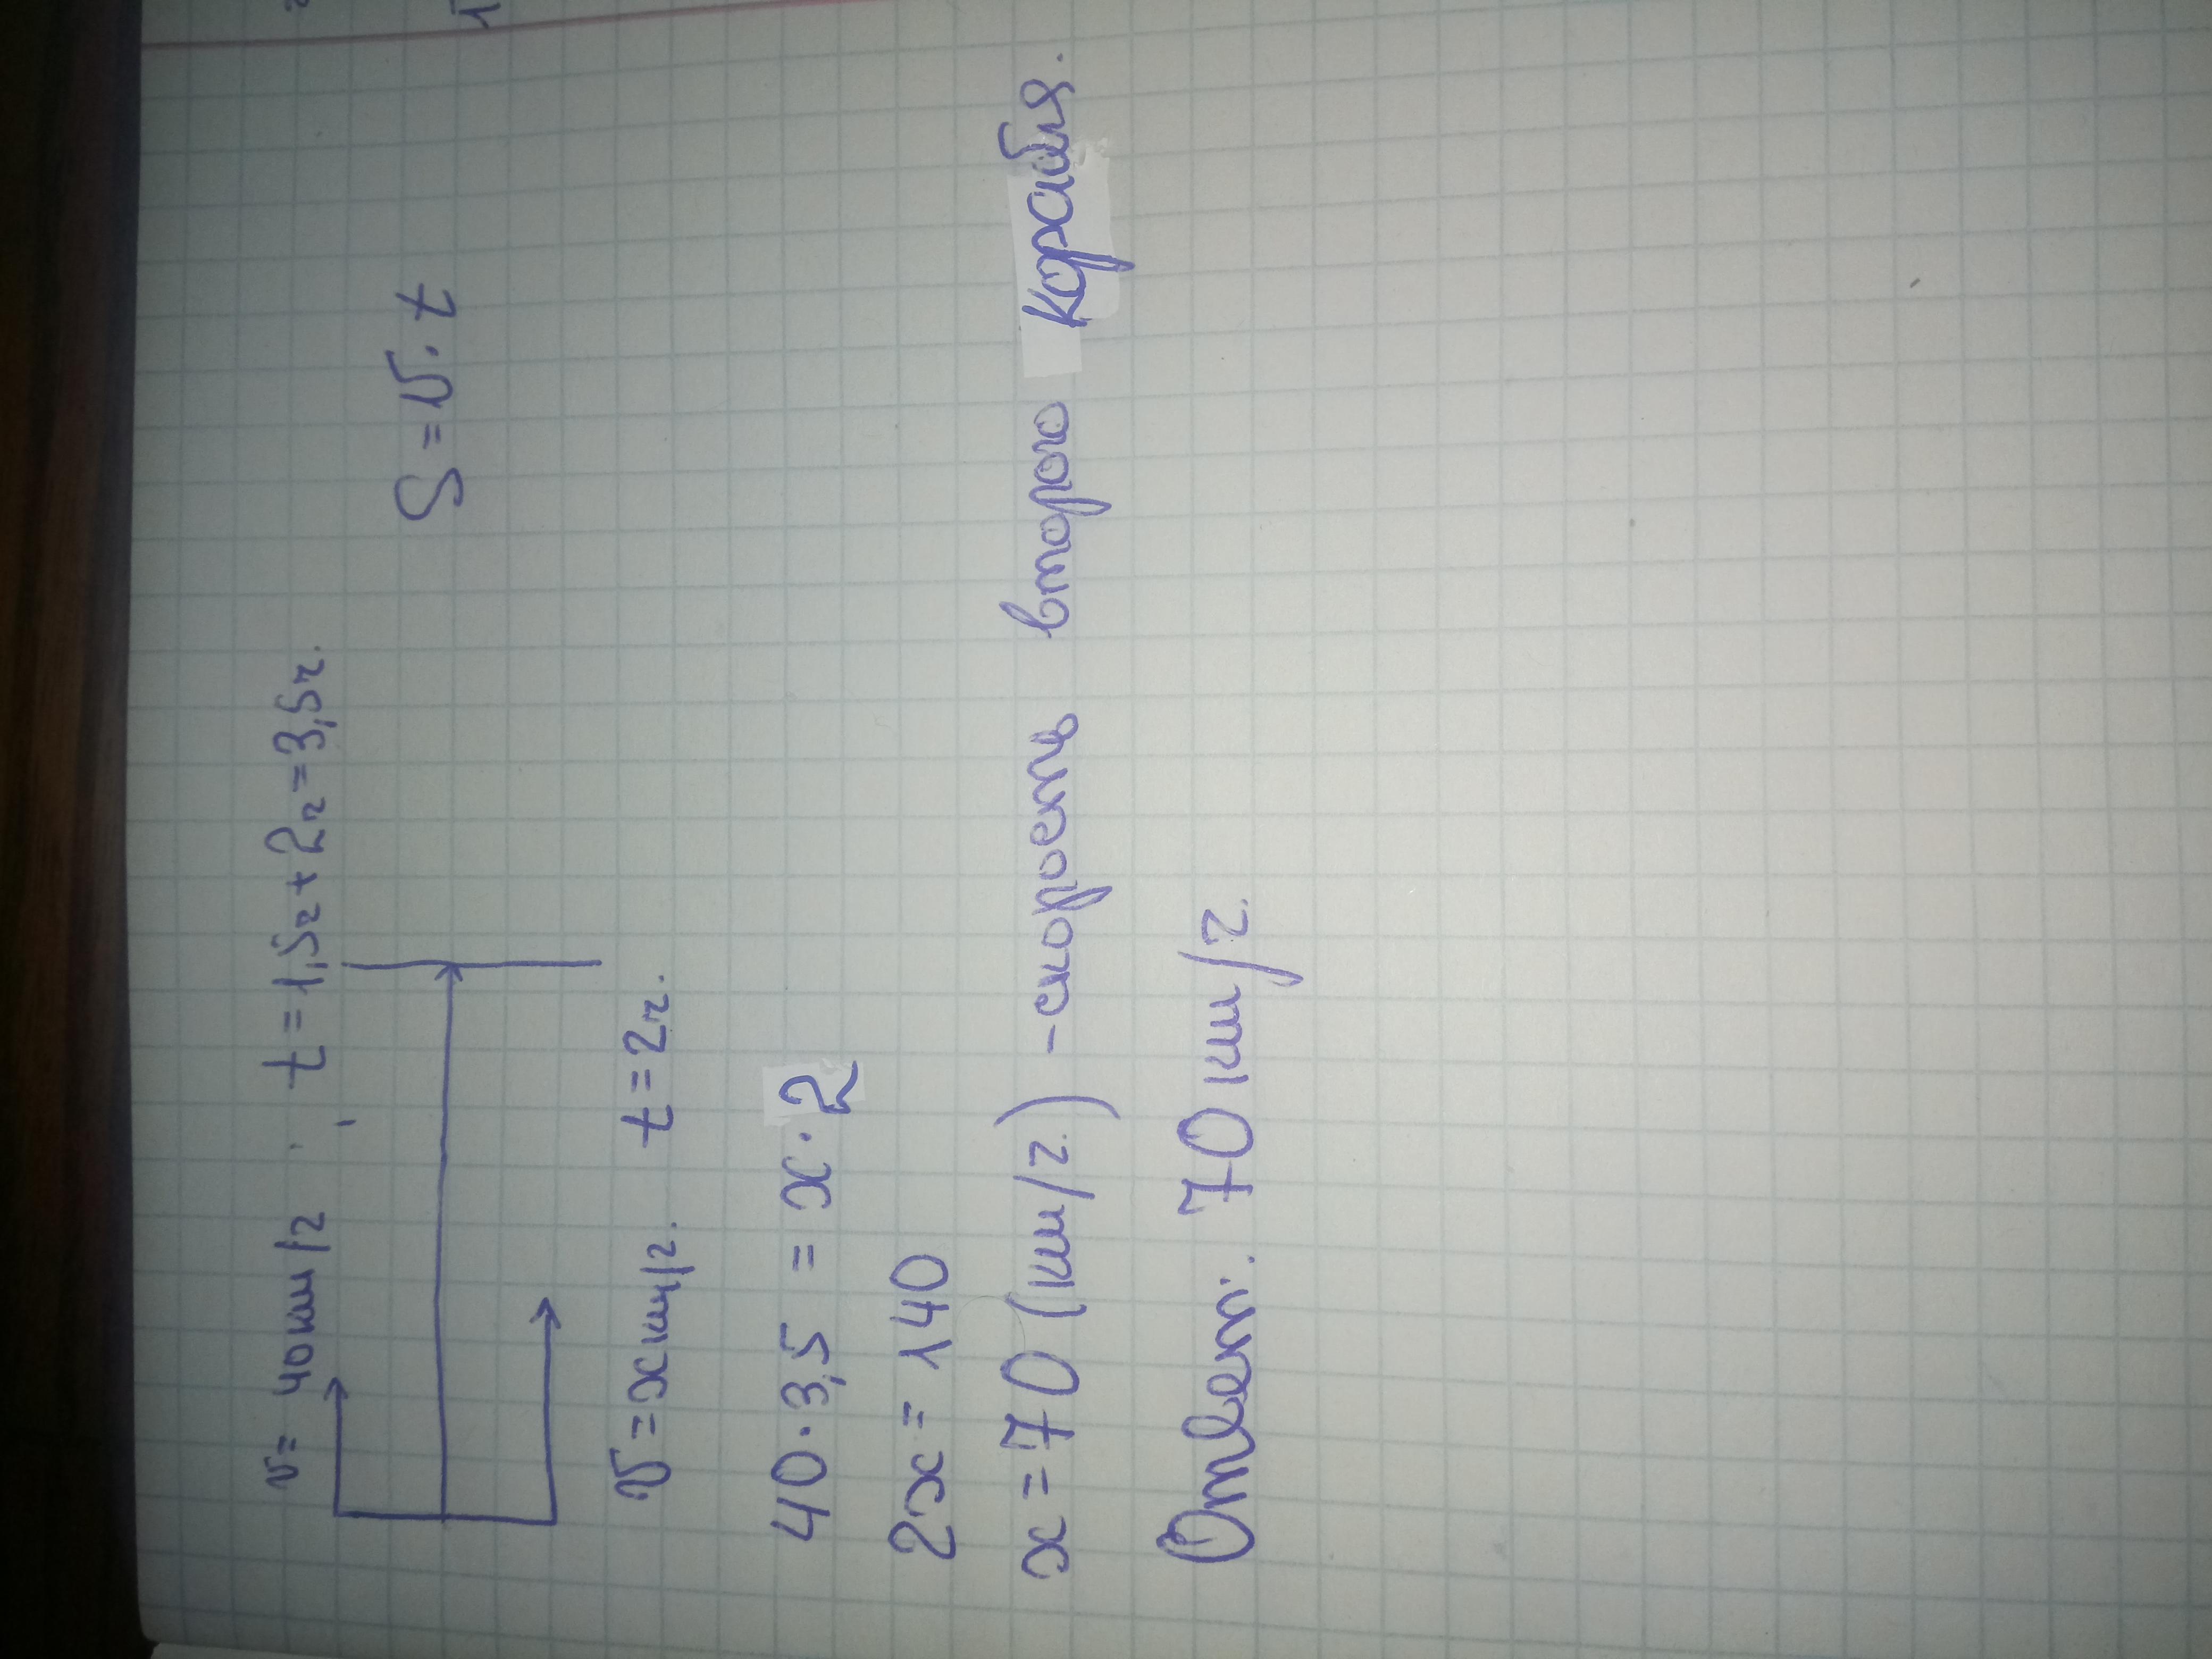 v = 40 км/ч t = 1,5ч + 2ч = 3,5ч.
S = v · t
v = x км/ч. t = 2ч.
40 · 3,5 = x · 2
2x = 140
x = 70 (км/ч.) - скорость второго корабля.
Ответ: 70 км/ч.